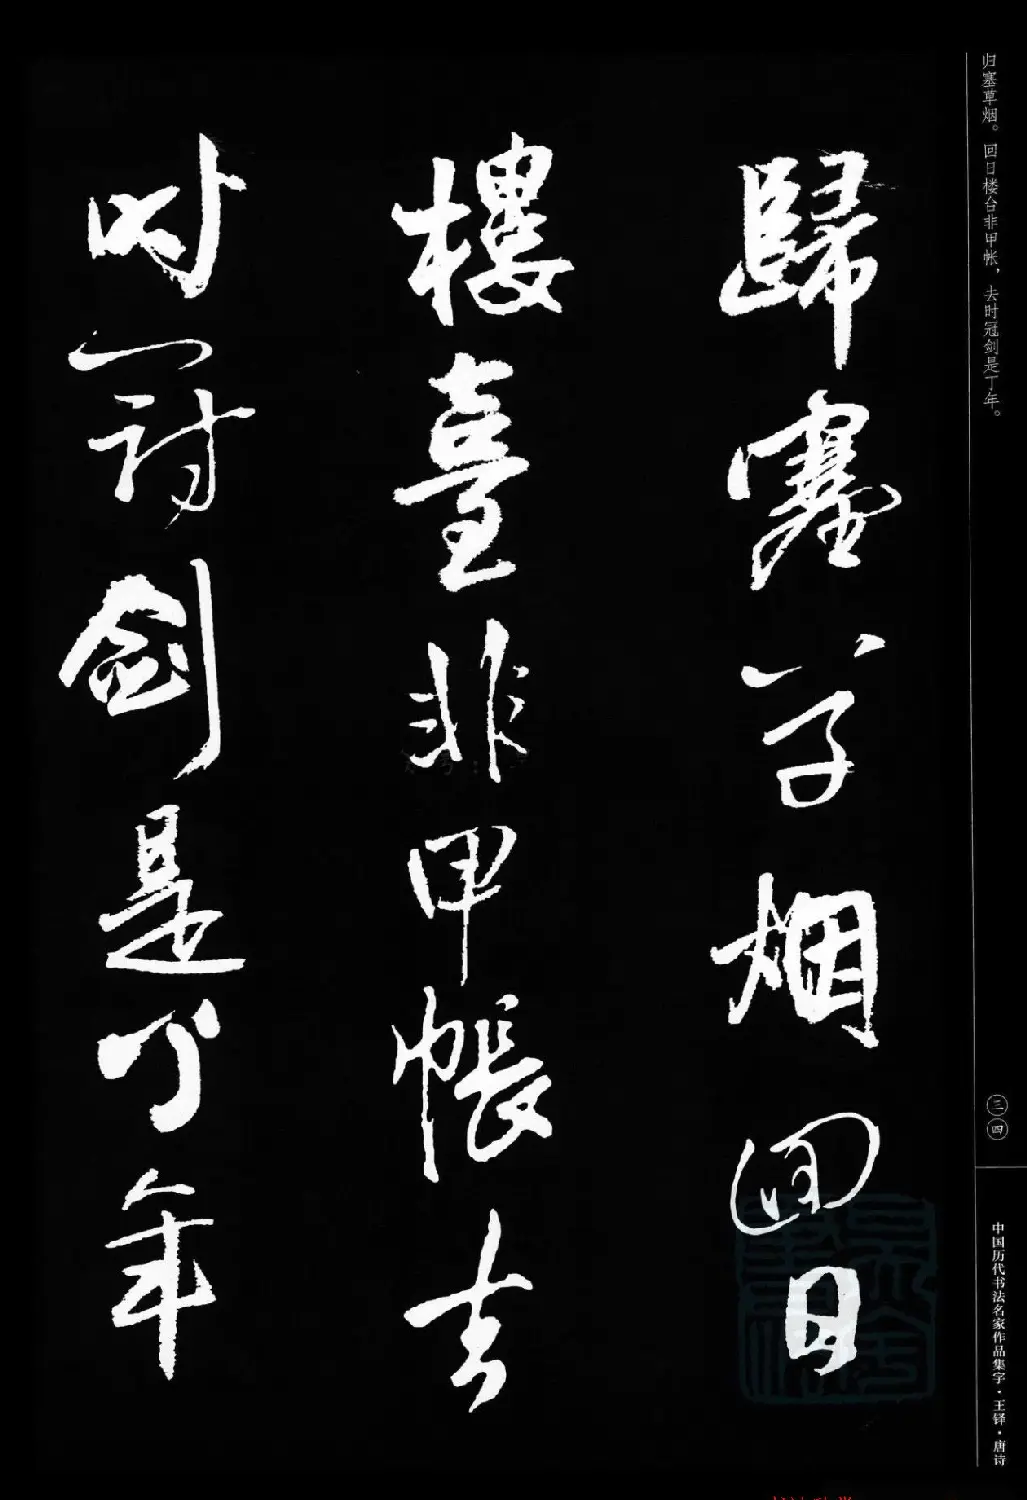 归塞草烟。回日楼台非甲帐，去时冠剑是丁年。
歸塞草烟回日
樓臺非甲帳去
时冠剑是丁年
三四
中国历代书法名家作品集字·王铎·唐诗